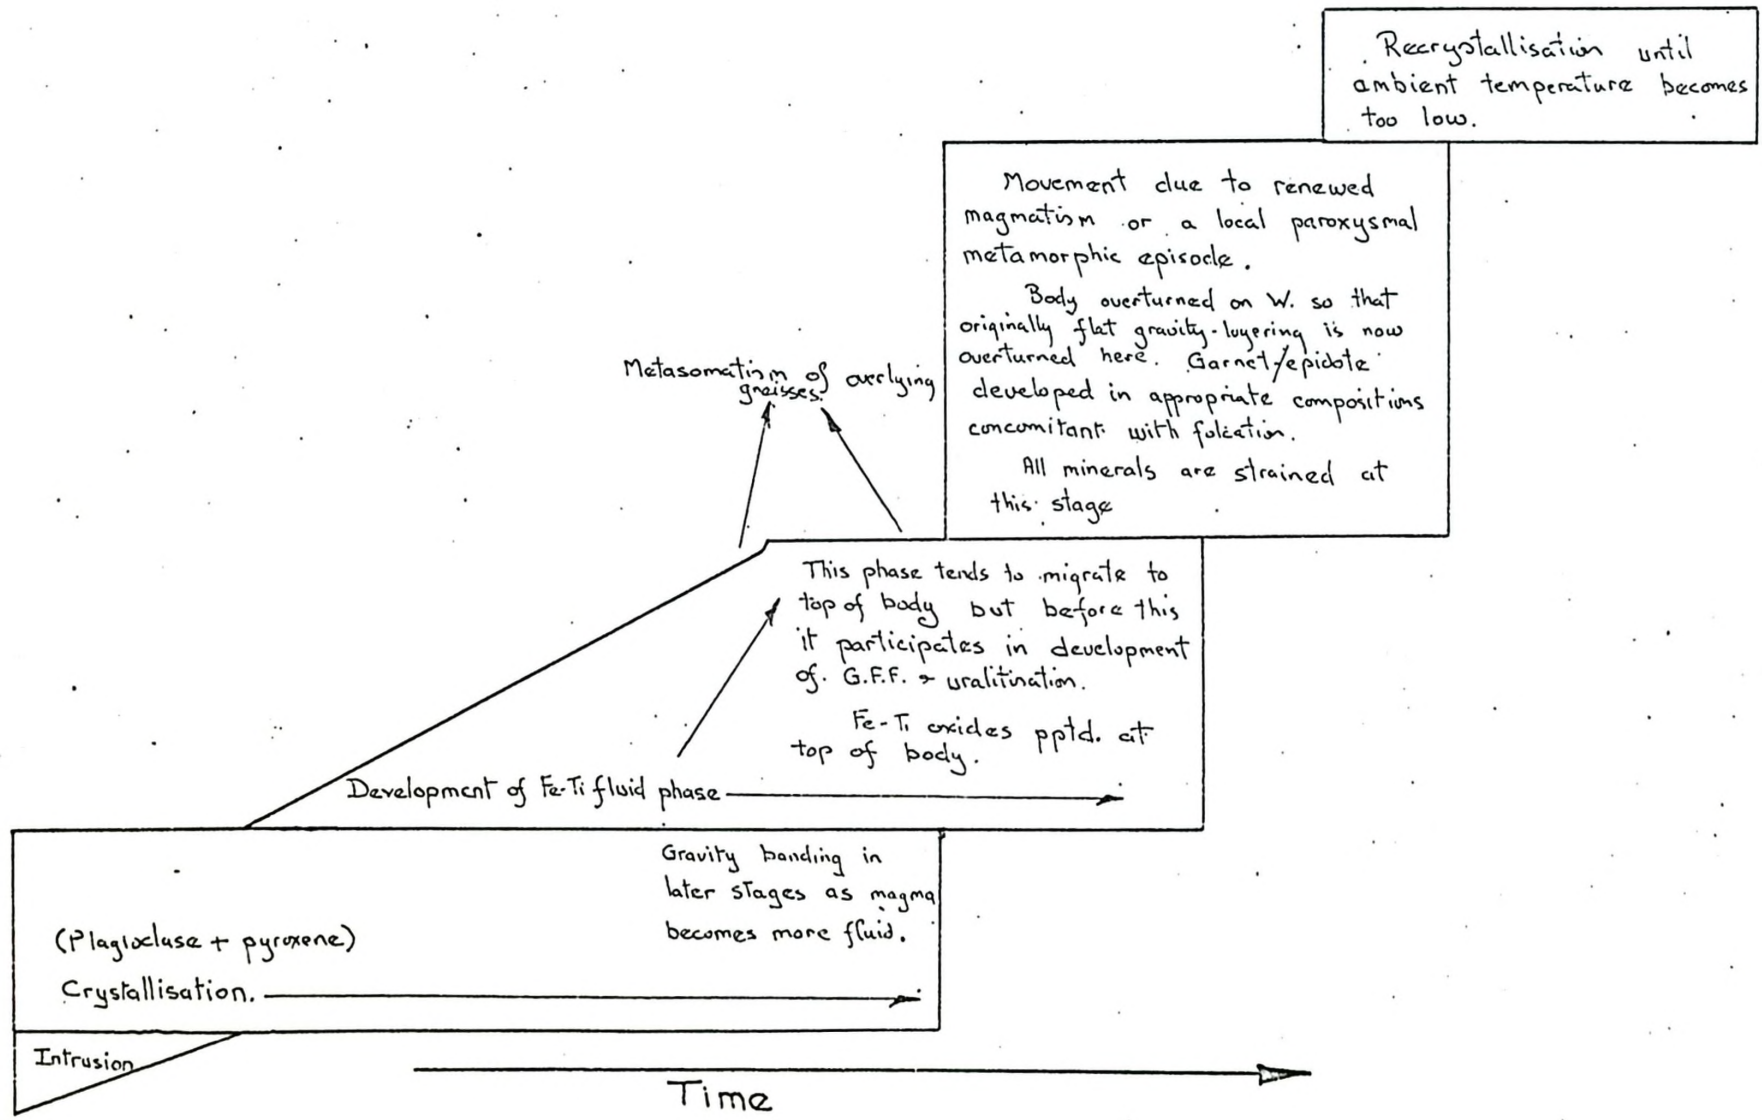 Recrystallisation until
ambient temperature becomes
too low.
Movement due to renewed
magmatism or a local paroxysmal
metamorphic episode.
Body overturned on W. so that
originally flat gravity-layering is now
overturned here. Garnet/epidote
developed in appropriate compositions
concomitant with foliation.
All minerals are strained at
this stage
Metasomatism of overlying
gneisses.
This phase tends to migrate to
top of body but before this
it participates in development
of G.F.F. & uralitination.
Fe-Ti oxides pptd. at
top of body.
Development of Fe-Ti fluid phase
Gravity banding in
later stages as magma
becomes more fluid.
(Plagioclase + pyroxene)
Crystallisation.
Intrusion
Time